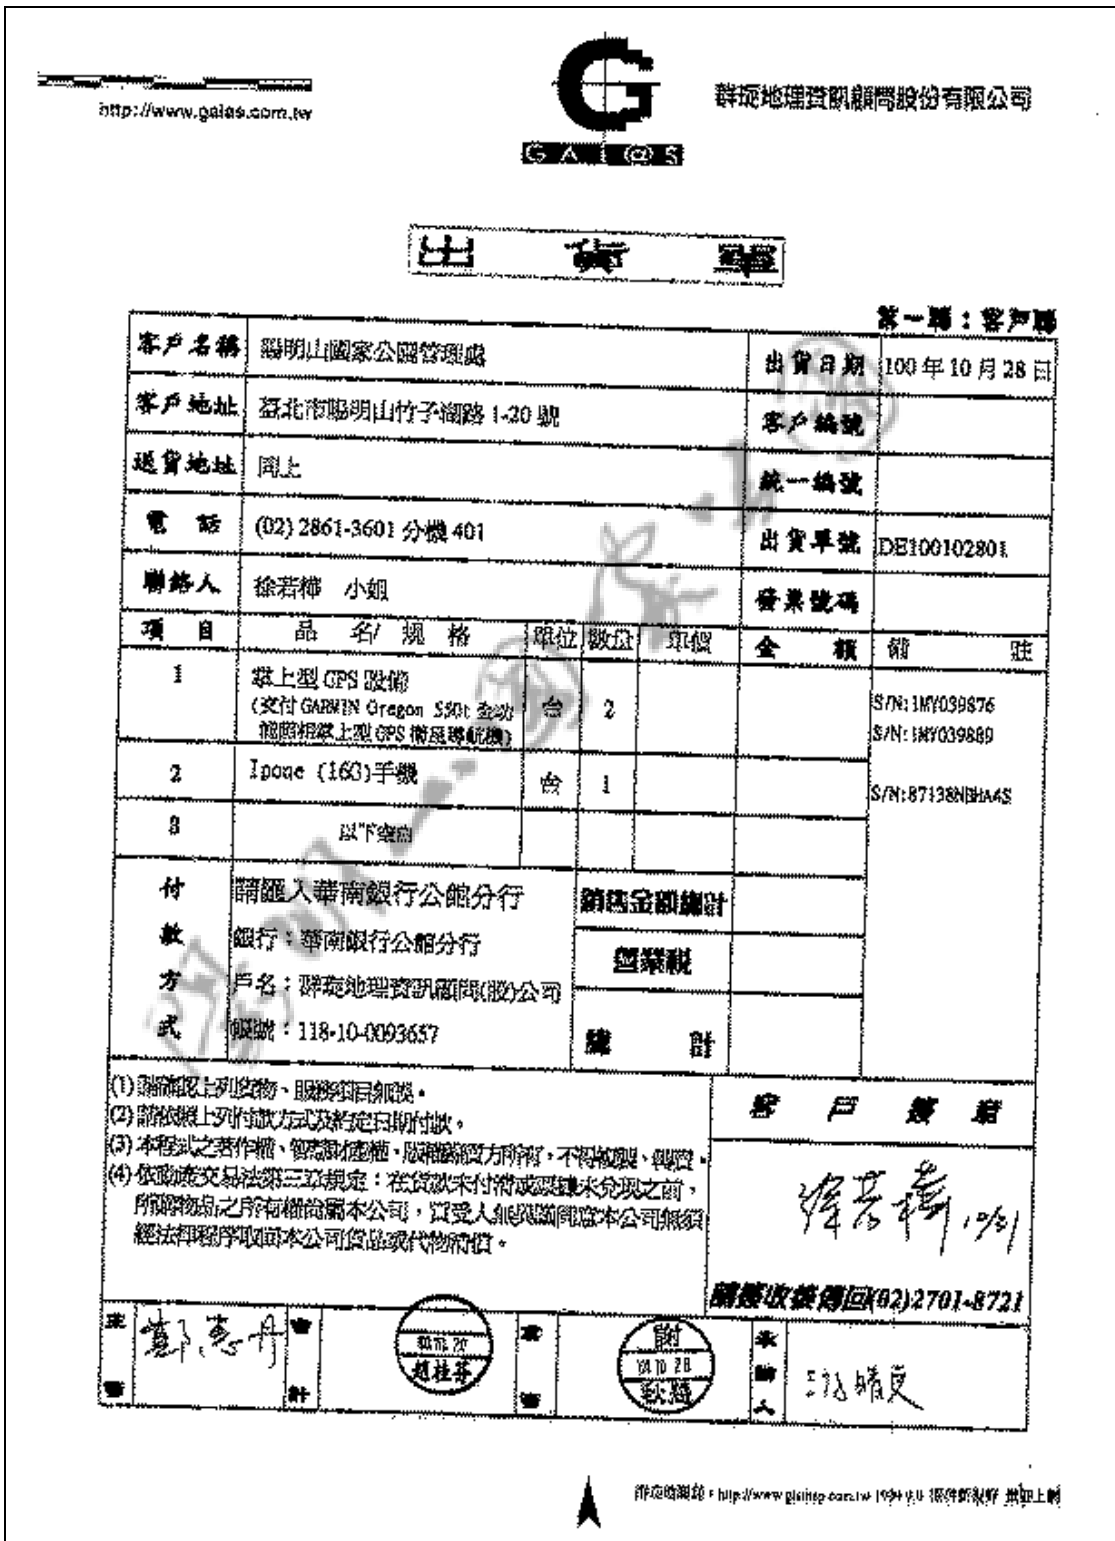 http://www.gaias.com.tw
GAI@S
群琁地理資訊顧問股份有限公司
出貨單
第一聯：客戶聯
客戶名稱 陽明山國家公園管理處 出貨日期 100年10月28日
客戶地址 臺北市陽明山竹子湖路 1-20 號 客戶編號
送貨地址 同上 統一編號
電話 (02) 2861-3601 分機 401 出貨單號 DE100102801
聯絡人 徐若樺 小姐 發票號碼
項目 品名/規格 單位 數量 單價 金額 備註
1 掌上型 GPS 設備 台 2 S/N:1MY039876
(交付 GARMIN Oregon 550t 全功 S/N:1MY039889
能照相掌上型 GPS 衛星導航機)
2 Ipone (16G)手機 台 1 S/N:87138NBHA4S
3 以下空白
付款方式 請匯入華南銀行公館分行 銷售金額總計
銀行：華南銀行公館分行 營業稅
戶名：群琁地理資訊顧問(股)公司
帳號：118-10-0093657 總計
(1) 請確認上列貨物、服務項目無誤。
(2) 請依照上列付款方式及約定日期付款。
(3) 本程式之著作權、智慧財產權、版權歸賣方所有，不得複製、轉賣。
(4) 依動產交易法第三章規定：在貨款未付清或票據未兌現之前，
所購物品之所有權尚屬本公司，買受人無異議同意本公司無須
經法律程序取回本公司貨品或代物清償。
客戶簽章
徐若樺 10/31
請簽收後傳回(02)2701-8721
主管 鄭惠丹 會計 趙桂芬 主管 謝 100.10.28 承辦人